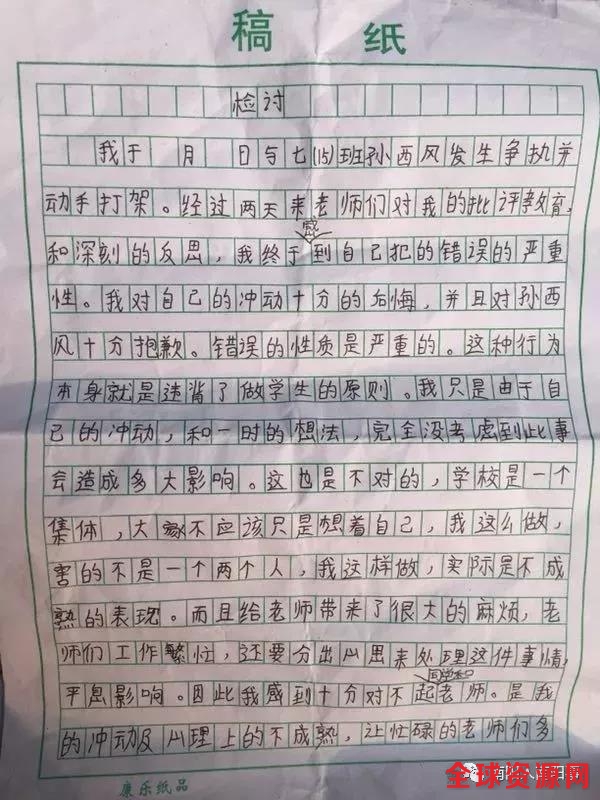 稿 纸
检讨
我于 月 日与七(15)班孙西风发生争执并
动手打架。经过两天来老师们对我的批评教育,
和深刻的反思,我终于感到自己犯的错误的严重
性。我对自己的冲动十分的后悔,并且对孙西
风十分抱歉。错误的性质是严重的。这种行为
本身就是违背了做学生的原则。我只是由于自
己的冲动,和一时的想法,完全没考虑到此事
会造成多大影响。这也是不对的,学校是一个
集体,大家不应该只是想着自己,我这么做,
害的不是一个两个人,我这样做,实际是不成
熟的表现。而且给老师带来了很大的麻烦,老
师们工作繁忙,还要分出心思来处理这件事情,
平息影响。因此我感到十分对不起同学和老师。是我
的冲动及心理上的不成熟,让忙碌的老师们多
康乐纸品
全球资源网